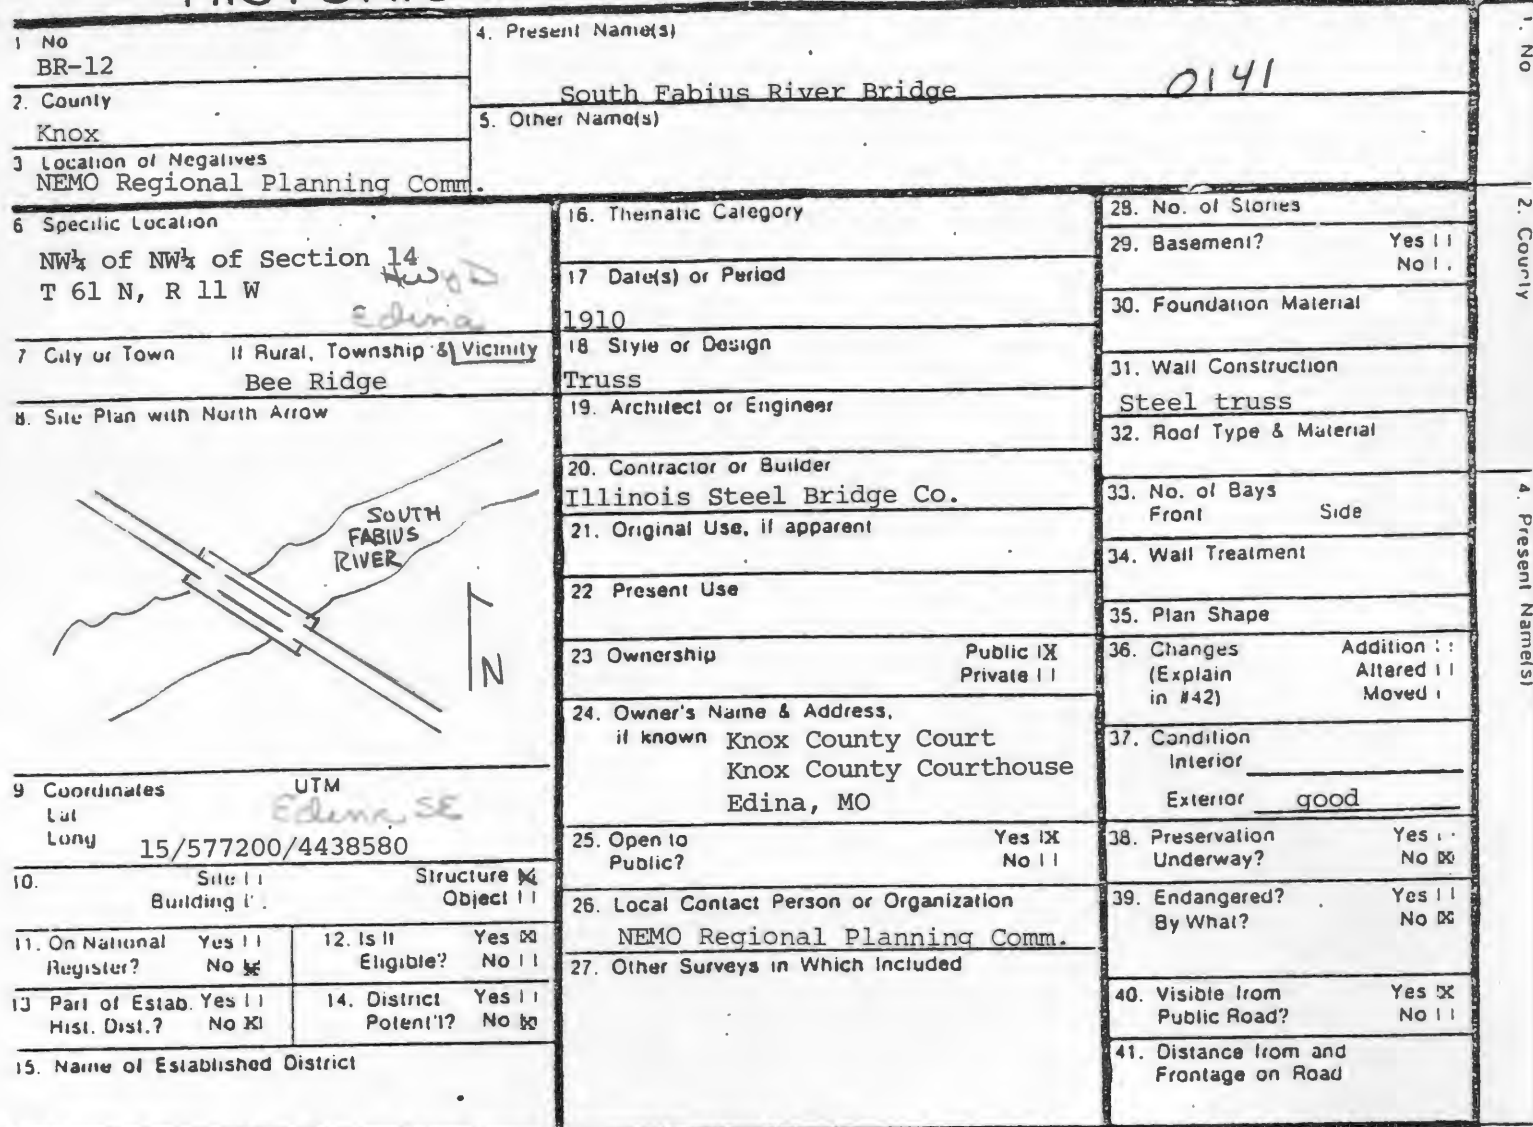 1 No
BR-12
2. County
Knox
3 Location of Negatives
NEMO Regional Planning Comm.
4. Present Name(s)
South Fabius River Bridge
0141
5. Other Name(s)
6 Specific Location
NW¼ of NW¼ of Section 14
T 61 N, R 11 W
Hwy D
Edina
7 City or Town If Rural, Township & Vicinity
Bee Ridge
8. Site Plan with North Arrow
SOUTH
FABIUS
RIVER
N
9 Coordinates UTM
Lat
Long
Edina SE
15/577200/4438580
10. Site | | Structure X
Building | | Object | |
11. On National Yes | |
Register? No X
12. Is It Yes X
Eligible? No | |
13 Part of Estab. Yes | |
Hist. Dist.? No X
14. District Yes | |
Potent'l? No X
15. Name of Established District
16. Thematic Category
17 Date(s) or Period
1910
18 Style or Design
Truss
19. Architect or Engineer
20. Contractor or Builder
Illinois Steel Bridge Co.
21. Original Use, if apparent
22 Present Use
23 Ownership Public |X
Private | |
24. Owner's Name & Address,
if known Knox County Court
Knox County Courthouse
Edina, MO
25. Open to Yes |X
Public? No | |
26. Local Contact Person or Organization
NEMO Regional Planning Comm.
27. Other Surveys in Which Included
28. No. of Stories
29. Basement? Yes | |
No | .
30. Foundation Material
31. Wall Construction
Steel truss
32. Roof Type & Material
33. No. of Bays
Front Side
34. Wall Treatment
35. Plan Shape
36. Changes Addition | |
(Explain Altered | |
in #42) Moved |
37. Condition
Interior
Exterior good
38. Preservation Yes | |
Underway? No X
39. Endangered? Yes | |
By What? No X
40. Visible from Yes X
Public Road? No | |
41. Distance from and
Frontage on Road
1. No
2. County
4. Present Name(s)